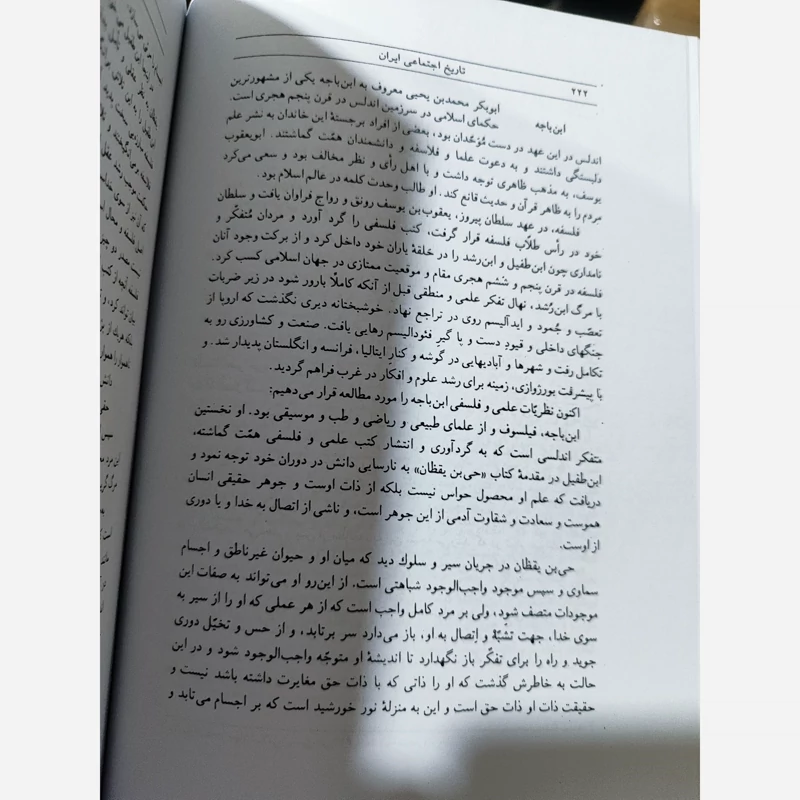 تاریخ اجتماعی ایران
۲۲۲
ابن‌باجه
ابوبکر محمدبن یحیی معروف به ابن‌باجه یکی از مشهورترین
حکمای اسلامی در سرزمین اندلس در قرن پنجم هجری است.
اندلس در این عهد در دست مُوَحّدان بود، بعضی از افراد برجستهٔ این خاندان به نشر علم
دلبستگی داشتند و به دعوت علما و فلاسفه و دانشمندان همّت گماشتند. ابویعقوب
یوسف، به مذهب ظاهری توجه داشت و با اهل رأی و نظر مخالف بود و سعی می‌کرد
مردم را به ظاهر قرآن و حدیث قانع کند. او طالب وحدت کلمه در عالم اسلام بود.
فلسفه، در عهد سلطان پیروز، یعقوب‌بن یوسف رونق و رواج فراوان یافت و سلطان
خود در رأس طلّاب فلسفه قرار گرفت، کتب فلسفی را گرد آورد و مردان مُتفکّر و
نامداری چون ابن‌طفیل و ابن‌رشد را در حلقهٔ یاران خود داخل کرد و از برکت وجود آنان
فلسفه در قرن پنجم و ششم هجری مقام و موقعیت ممتازی در جهان اسلامی کسب کرد.
با مرگ ابن‌رُشد، نهال تفکر علمی و منطقی قبل از آنکه کاملاً بارور شود در زیر ضربات
تعصّب و جُمود و ایدآلیسم روی در تراجع نهاد. خوشبختانه دیری نگذشت که اروپا از
جنگهای داخلی و قیود دست و پا گیرِ فئودالیسم رهایی یافت. صنعت و کشاورزی رو به
تکامل رفت و شهرها و آبادیهایی در گوشه و کنار ایتالیا، فرانسه و انگلستان پدیدار شد. و
با پیشرفت بورژوازی، زمینه برای رشد علوم و افکار در غرب فراهم گردید.
اکنون نظریّات علمی و فلسفی ابن‌باجه را مورد مطالعه قرار می‌دهیم:
ابن‌باجه، فیلسوف و از علمای طبیعی و ریاضی و طب و موسیقی بود. او نخستین
متفکر اندلسی است که به گردآوری و انتشار کتب علمی و فلسفی همّت گماشته،
ابن‌طفیل در مقدمهٔ کتاب «حی‌بن یقظان» به نارسایی دانش در دوران خود توجه نمود و
دریافت که علم او محصول حواس نیست بلکه از ذات اوست و جوهر حقیقی انسان
هموست و سعادت و شقاوت آدمی از این جوهر است، و ناشی از اتصال به خدا و یا دوری
از اوست.
حی‌بن یقظان در جریان سیر و سلوك دید که میان او و حیوان غیرناطق و اجسام
سماوی و سپس موجود واجب‌الوجود شباهتی است. از این‌رو او می‌تواند به صفات این
موجودات متصف شود، ولی بر مرد کامل واجب است که از هر عملی که او را از سیر به
سوی خدا، جهت تشبّه و اتصال به او، باز می‌دارد سر برتابد، و از حس و تخیّل دوری
جوید و راه را برای تفکّر باز نگهدارد تا اندیشهٔ او متوجّه واجب‌الوجود شود و در این
حالت به خاطرش گذشت که او را ذاتی که با ذات حق مغایرت داشته باشد نیست و
حقیقت ذات او ذات حق است و این به منزلهٔ نور خورشید است که بر اجسام می‌تابد و